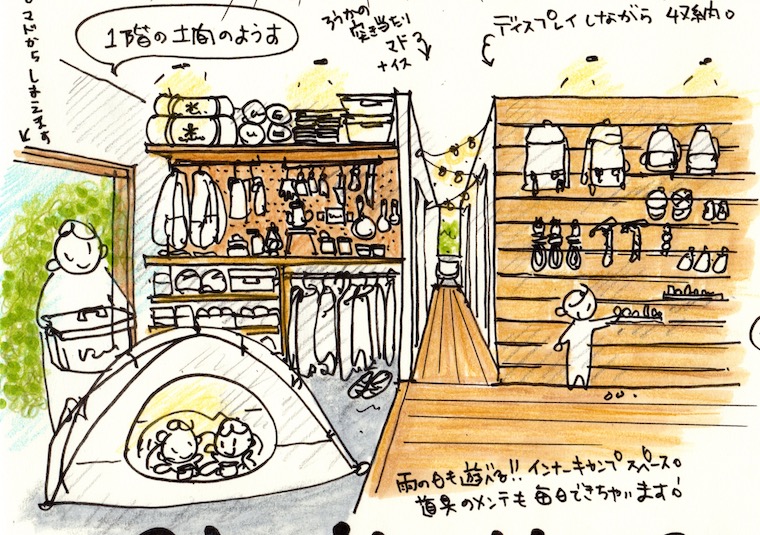 マドからしまえます
1階の土間のようす
ろうかの
突き当たり
マド
ナイス
ディスプレイしながら 収納。
雨の日も遊べる!! インナーキャンプ スペース。
道具のメンテも 毎日できちゃいます!